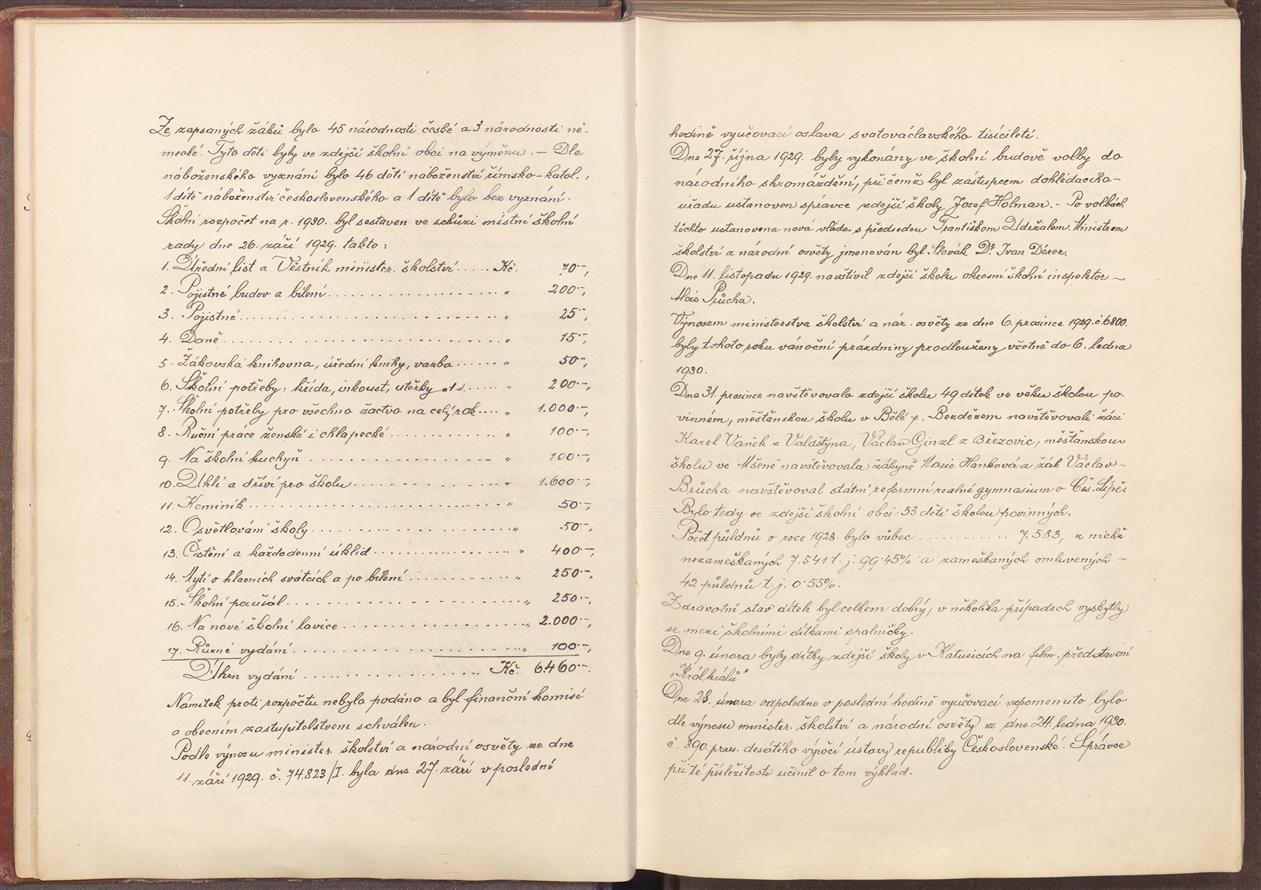 Ze zapsaných žáků bylo 45 národnosti české a 3 národnosti ně-
mecké. Tyto děti byly ve zdejší školní obci na výměnu. — Dle
náboženského vyznání bylo 46 dětí náboženství římsko-katol.,
1 dítě náboženství československého a 1 dítě bylo bez vyznání.
Školní rozpočet na r. 1930. byl sestaven ve schůzi místní školní
rady dne 26. září 1929. takto:
1. Úřední list a Věstník minister. školství ..... Kč. 70·–,
2. Pojistné budov a bílení .................... " 200·–,
3. Pojistné .................... " 25·–,
4. Daně .................... " 15·–,
5. Žákovská knihovna, úřední knihy, vazba ...... " 50·–,
6. Školní potřeby: křída, inkoust, utěrky a t.d. ..... " 200·–,
7. Školní potřeby pro všechno žactvo na celý rok .... " 1.000·–,
8. Ruční práce ženské i chlapecké ............ " 100·–,
9. Na školní kuchyň .................... " 100·–,
10. Uhlí a dříví pro školu .................... " 1.600·–,
11. Kominík .................... " 50·–,
12. Osvětlování školy .................... " 50·–,
13. Čistění a každodenní úklid ................ " 400·–,
14. Mytí o hlavních svátcích a po bílení ............ " 250·–,
15. Školní paušál .................... " 250·–,
16. Na nové školní lavice .................... " 2.000·–,
17. Různé vydání .................... " 100·–,
Úhrn vydání .................... Kč. 6.460·–.
Námitek proti rozpočtu nebylo podáno a byl finanční komisí
a obecním zastupitelstvem schválen.
Podle výnosu minister. školství a národní osvěty ze dne
11. září 1929. č. 74.823/I. byla dne 27. září v poslední
hodině vyučovací oslava svatováclavského tisíciletí.
Dne 27. října 1929. byly vykonány ve školní budově volby do
národního shromáždění, při čemž byl zástupcem dohlédacího
úřadu ustanoven správce zdejší školy Josef Holman. - Po volbách
těchto ustanovena nová vláda s předsedou Františkem Udržalem. Ministrem
školství a národní osvěty jmenován byl Slovák Dr. Ivan Dérer.
Dne 11. listopadu 1929. navštívil zdejší školu okresní školní inspektor —
Alois Průcha.
Výnosem ministerstva školství a nár. osvěty ze dne 6. prosince 1929. č. 6800.
byly tohoto roku vánoční prázdniny prodlouženy včetně do 6. ledna
1930.
Dne 31. prosince navštěvovalo zdejší školu 49 dítek ve věku školou po-
vinném, měšťanskou školu v Bělé p. Bezdězem navštěvovali žáci
Karel Vaněk z Valdštýna, Václav Ginzl z Březovic, měšťanskou
školu ve Mšeně navštěvovala žákyně Marie Hanková a žák Václav —
Brůcha navštěvoval státní reformní reálné gymnasium v Čes. Lípě.
Bylo tedy ve zdejší školní obci 53 dětí školou povinných.
Počet půldnů v roce 1928. bylo vůbec ............ 7.583, z nichž
nezameškaných 7.541 t. j. 99·45% a zameškaných omluvených —
42 půldnů t. j. 0·55%.
Zdravotní stav dítek byl celkem dobrý, v několika případech vyskytly
se mezi školními dítkami spalničky.
Dne 9. února byly dítky zdejší školy v Katusicích na film. představení
"Král králů"
Dne 28. února odpoledne v poslední hodině vyučovací vzpomenuto bylo
dle výnosu minister. školství a národní osvěty ze dne 24. ledna 1930.
č. 390. pres. desátého výročí ústavy republiky Československé. Správce
při té příležitosti učinil o tom výklad.